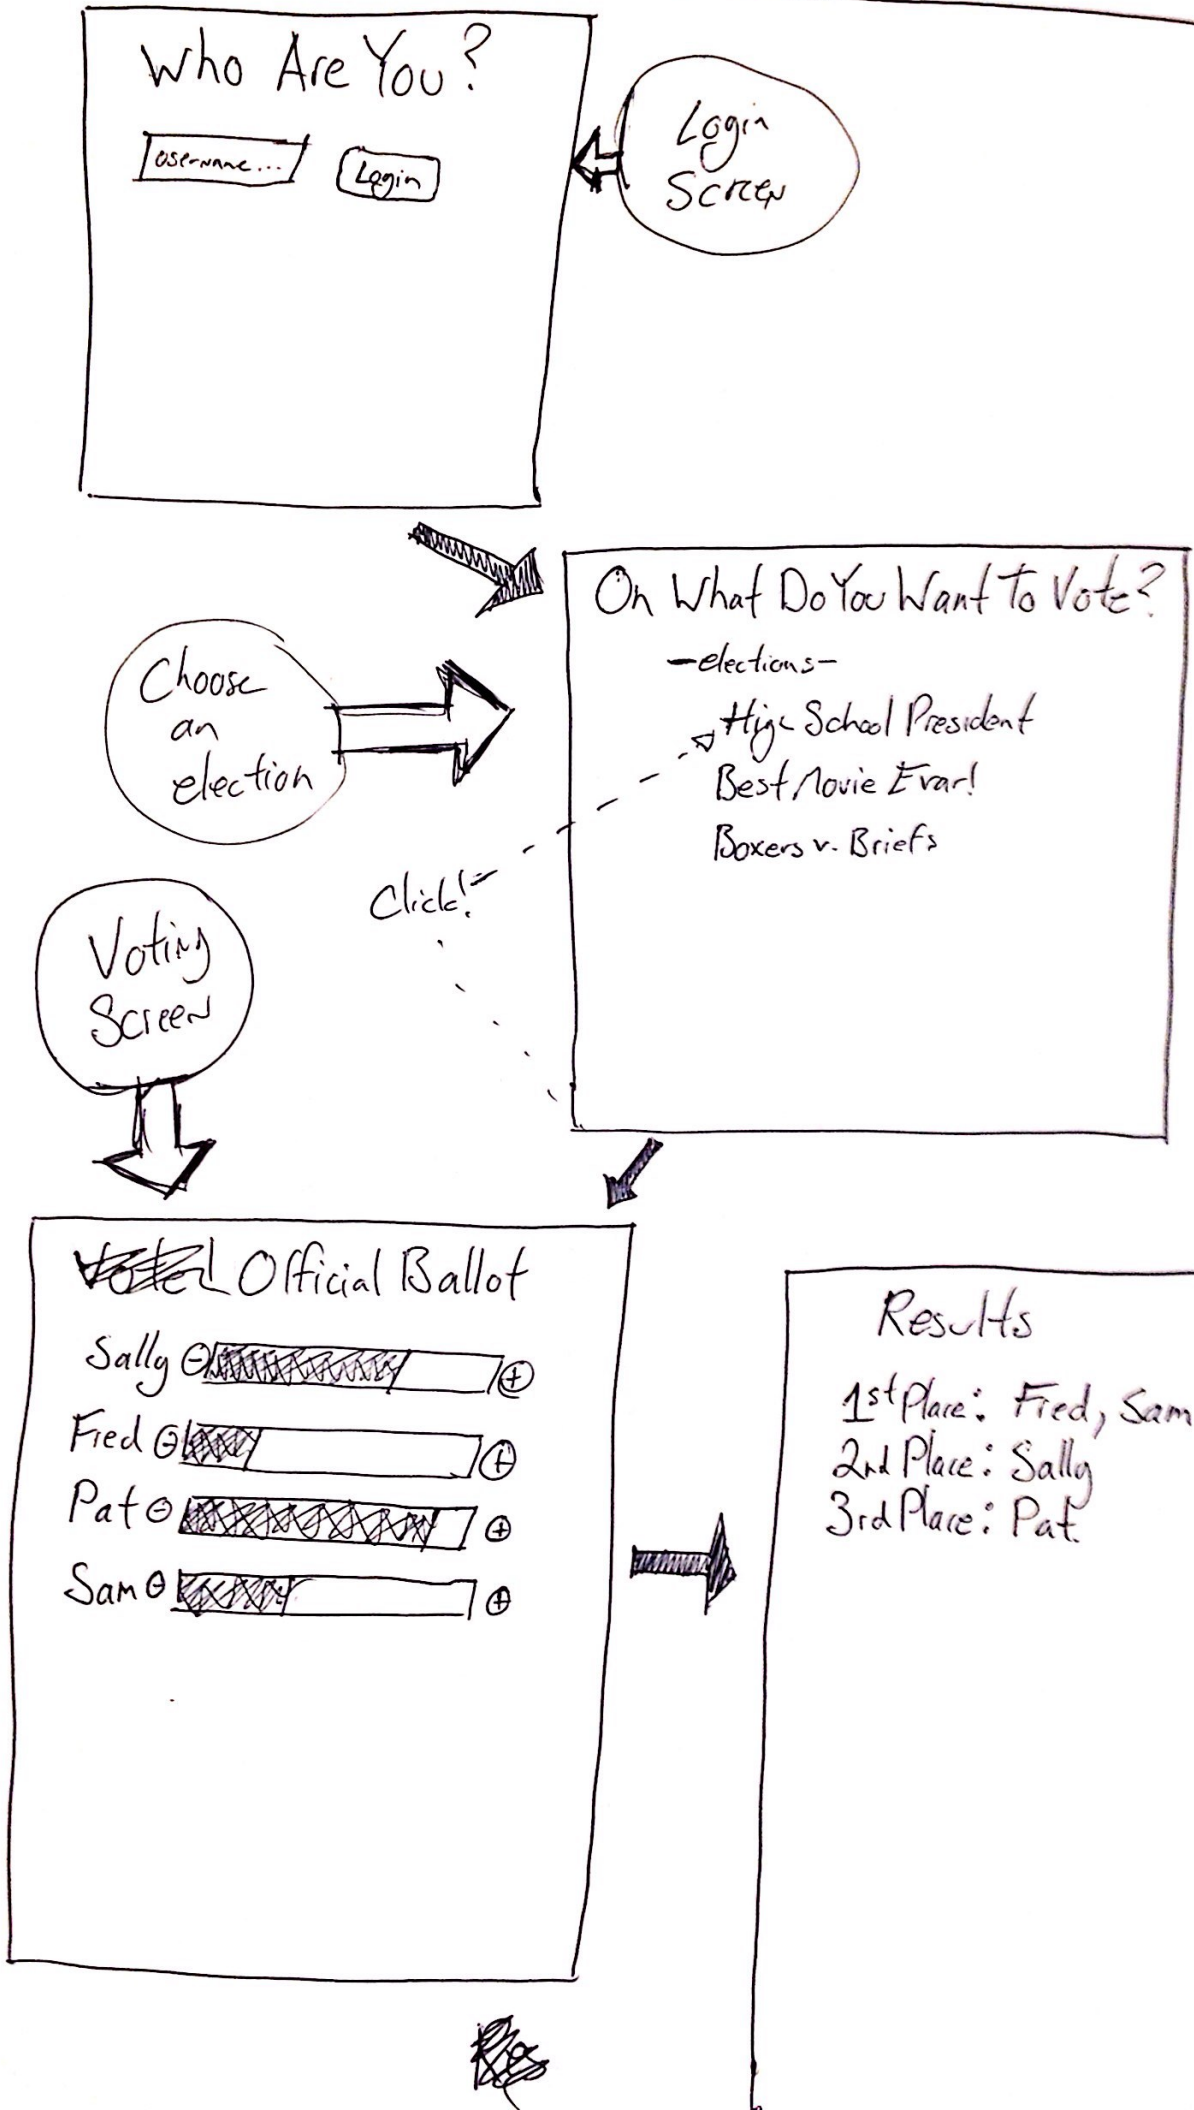 Who Are You?
username...
Login
Login
Screen
On What Do You Want To Vote?
-elections-
High School President
Best Movie Evar!
Boxers v. Briefs
Choose
an
election
Click!
Voting
Screen
Official Ballot
Sally
Fred
Pat
Sam
Results
1st Place: Fred, Sam
2nd Place: Sally
3rd Place: Pat